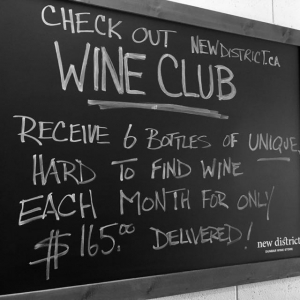 CHECK OUT NEWDISTRICT.CA
WINE CLUB
RECEIVE 6 BOTTLES OF UNIQUE,
HARD TO FIND WINE
EACH MONTH FOR ONLY
$165.00 DELIVERED!
new district